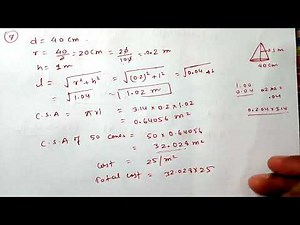 7
d = 40 cm
r = 40/2 = 20 cm = 20/100 = 0.2 m
h = 1 m
l = √r²+h² = √(0.2)²+1² = √0.04+1
= √1.04 = 1.02 m
C.S.A = πrl = 3.14 × 0.2 × 1.02
= 0.64056 m²
C.S.A of 50 cones = 50 × 0.64056
= 32.028 m²
Cost = 25/m²
Total cost = 32.028×25
40cm
1.00
0.04
0.204×3.14